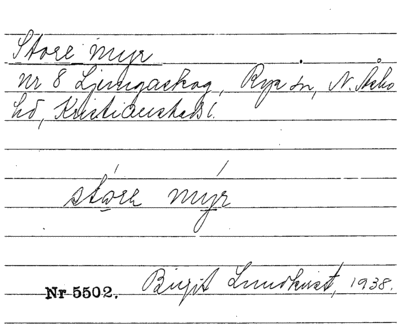 Store myr
nr 8 Ljungaskog, Rya sn, N. Åsbo
hd, Kristianstads l.
stóre mýr
Nr 5502. Birgit Lundkvist, 1938.